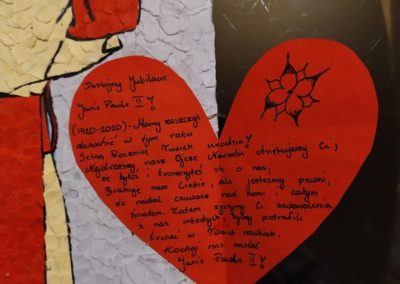 Dostojny Jubilacie
Janie Pawle II!
(1920-2020)- Mamy zaszczyt
obchodzić w tym roku
Setną Rocznicę Twoich urodzin!
Najdroższy, nasz Ojcze Narodu dziękujemy Ci,
że byłeś i troszczyłeś się o nas,
Brakuje nam Ciebie, ale jesteśmy pewni,
że nadal czuwasz nad nami i całym
światem. Zatem życzymy Ci zadowolenia
z nas młodych, byśmy potrafili
trwać w Twoich naukach.
Kochaj nas nadal
Janie Pawle II!